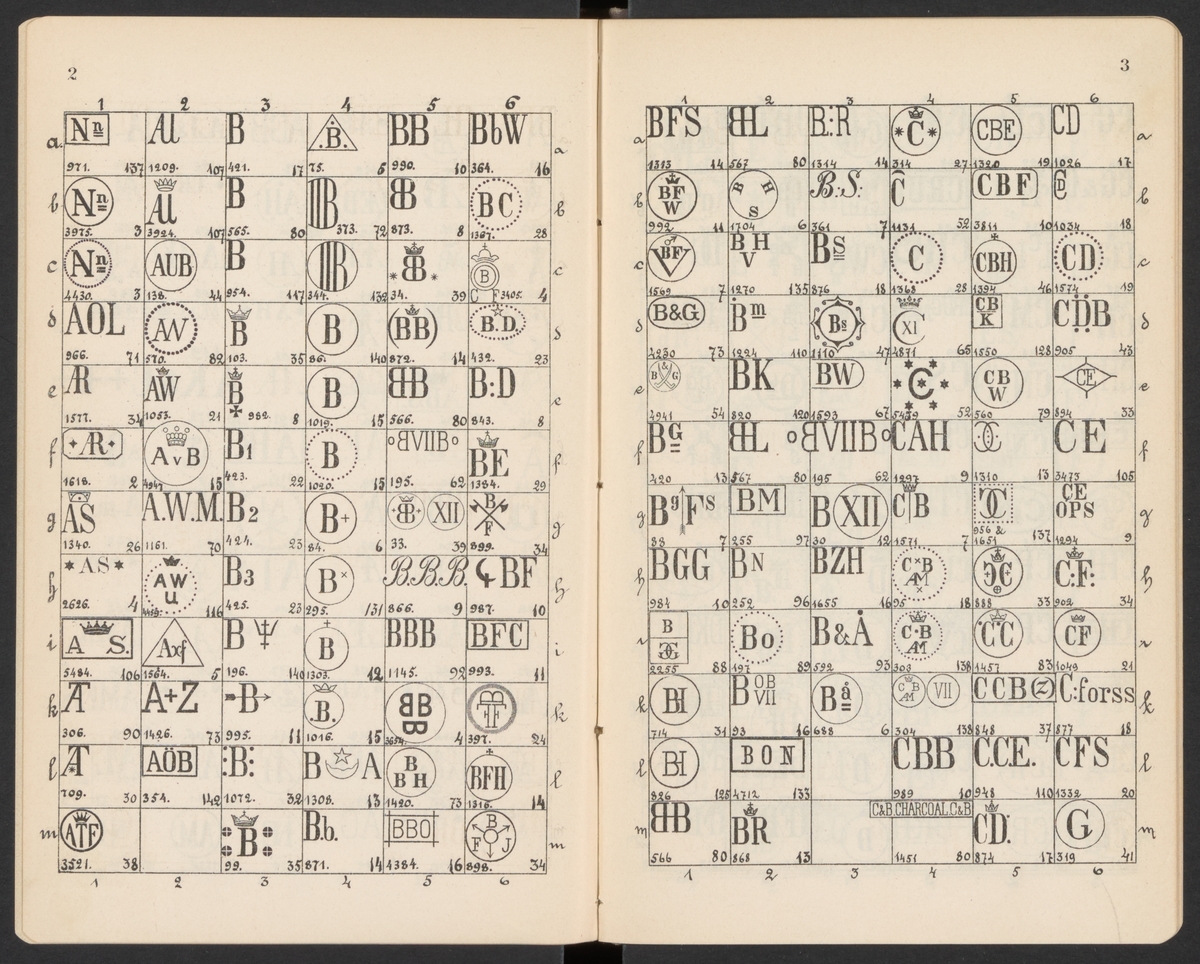 2
1 2 3 4 5 6
a. Nn AU B .B. BB BbW a
971. 137 1209. 107 421. 17 75. 5 990. 10 364. 16
b Nn AU B B BB BC b
3975. 3 3924. 107 565. 80 373. 72 873. 8 1367. 28
c Nn AUB B B *B.* B C F c
4430. 3 138. 44 954. 117 344. 132 34. 39 3405. 4
d AOL AW B B (BB) B.D. d
966. 71 570. 82 103. 35 86. 140 872. 14 432. 23
e AR AW B B BB B:D e
1577. 34 1053. 21 982. 8 1019. 15 566. 80 843. 8
f AR AvB B1 B BVIIB BE f
1618. 2 4947 15 423. 22 1020. 15 195. 62 1384. 29
g AS A.W.M. B2 B+ B+ XII B F g
1340. 26 1161. 70 424. 23 84. 6 33. 39 899. 34
h *AS* AWU B3 B× B.B.B. BF h
2626. 4 116 425. 23 295. 131 866. 9 987. 10
i A S. Axf B B BBB BFC i
5484. 106 1564. 5 196. 140 1303. 12 1145. 92 993. 11
k Æ A+Z B .B. BBB k
306. 90 1426. 73 995. 11 1016. 15 3654. 4 397. 24
l Æ AÖB :B: B A B BH BFH l
709. 30 354. 142 1072. 32 1308. 13 1420. 73 1316. 14
m ATF B B.b. BBO B F J m
3521. 38 99. 35 871. 14 4384. 16 898. 34
1 2 3 4 5 6
3
1 2 3 4 5 6
a BFS BHL B.:R *C* CBE CD a
1313 14 567 80 1314 14 314 27 1320 19 1026 17
b BFW BHS B.:S: C CBF CD b
992 11 1704 6 361 7 1131 52 3811 10 1034 18
c BF BHV Bs C CBH CD c
1569 7 1270 135 876 18 1368 28 1394 46 1574 19
d B&G B.m Bs XI CBK CDB d
4230 73 1224 110 1110 47 4871 65 1550 128 905 43
e B&G BK BW C CBW CE e
4941 54 820 120 1593 67 5439 52 560 79 894 33
f BG BHL BVIIB CAH CC CE f
420 13 567 80 195 62 1297 9 1310 13 3473 105
g BgFs BM BXII CB CC CE OPS g
88 7 255 97 30 12 1571 7 956 & 1651 137 1294 9
h BGG BN BZH C×B AM CC C:F: h
984 10 252 96 1655 16 95 18 888 33 902 34
i B GG Bo B&Å C·B AM CC CF i
2255 88 197 89 592 93 303 138 1457 83 1049 21
k BI BOB VII Bå CB AM VII CCB(Z) C:forss k
714 31 93 16 688 6 304 138 848 37 877 18
l BI BON CBB C.C.E. CFS l
826 125 4712 133 989 10 948 110 1332 20
m BB BR C&B.CHARCOAL.C&B CD. G m
566 80 868 13 1451 80 874 17 319 41
1 2 3 4 5 6